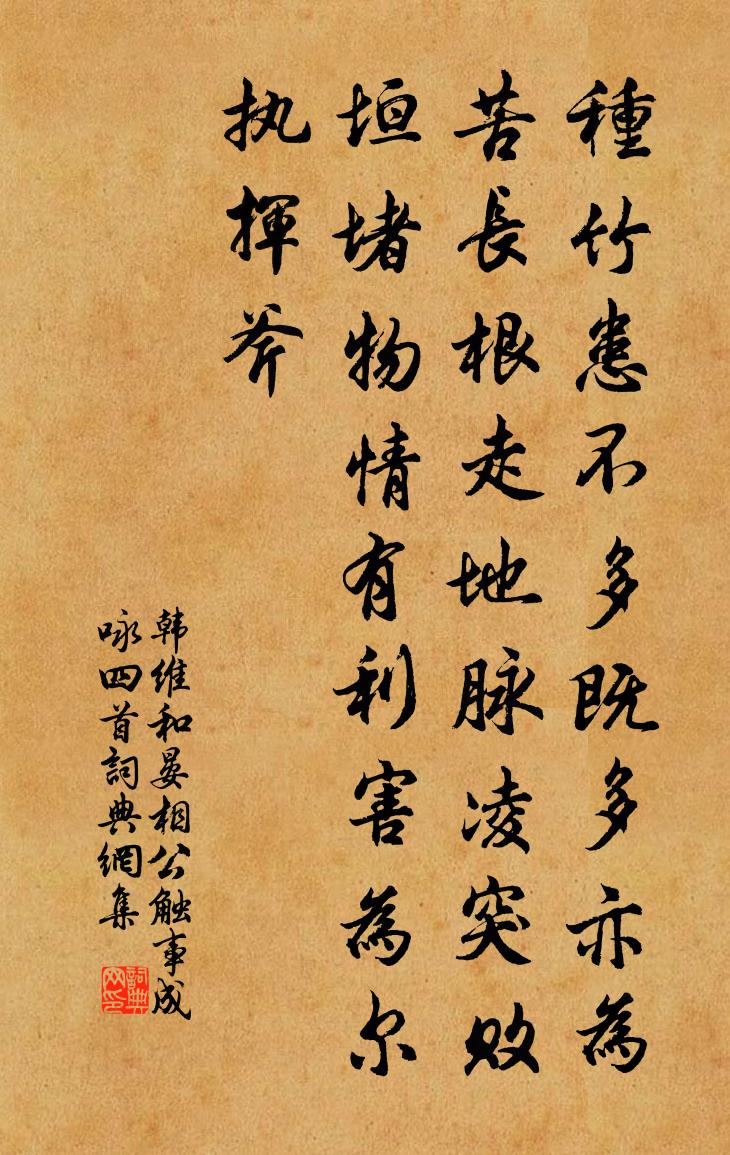 種竹患不多既多亦為
苦長根走地脉凌突敗
垣堵物情有利害為尔
执揮斧
韩維和晏相公触事成
咏四首詞典網集
詞典网印